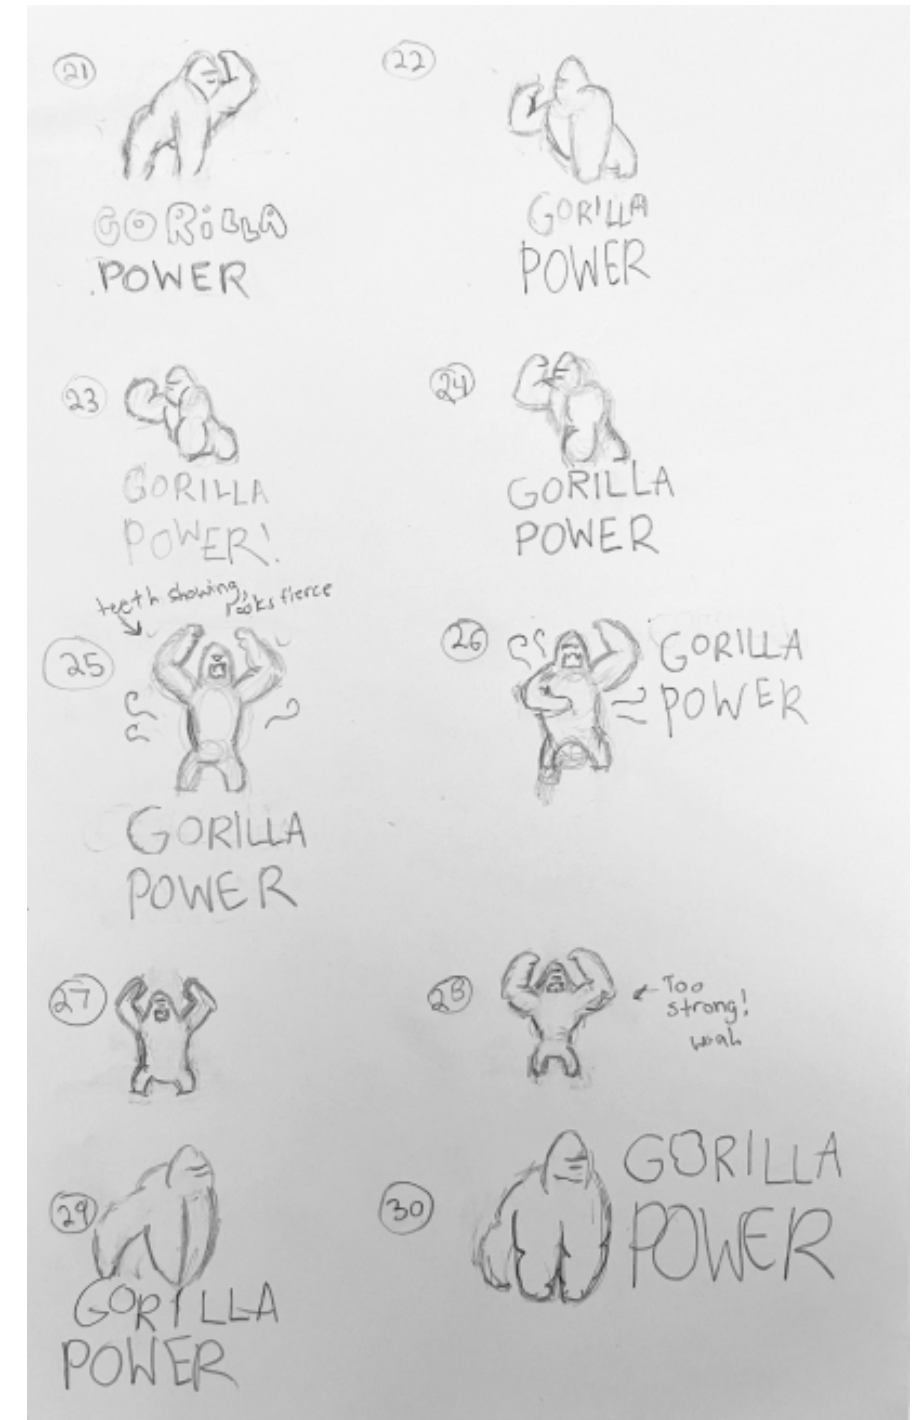 21
GORiLLA
POWER
22
GORILLA
POWER
23
GORILLA
POWER!
24
GORILLA
POWER
teeth showing,
looks fierce
25
GORILLA
POWER
26
GORILLA
POWER
27
28
Too
strong!
woah
29
GORILLA
POWER
30
GORILLA
POWER